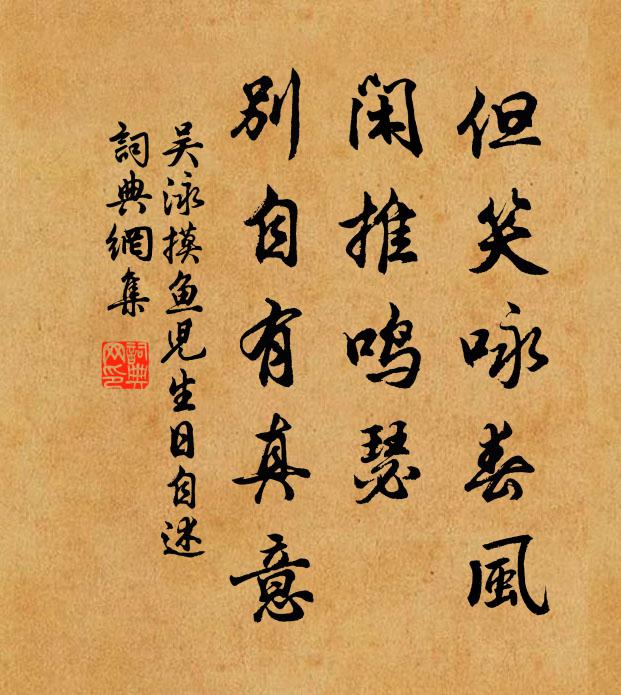 但笑咏春風
闲推鸣瑟
别自有真意
吴泳摸鱼児生日自述
詞典網集
詞典网印